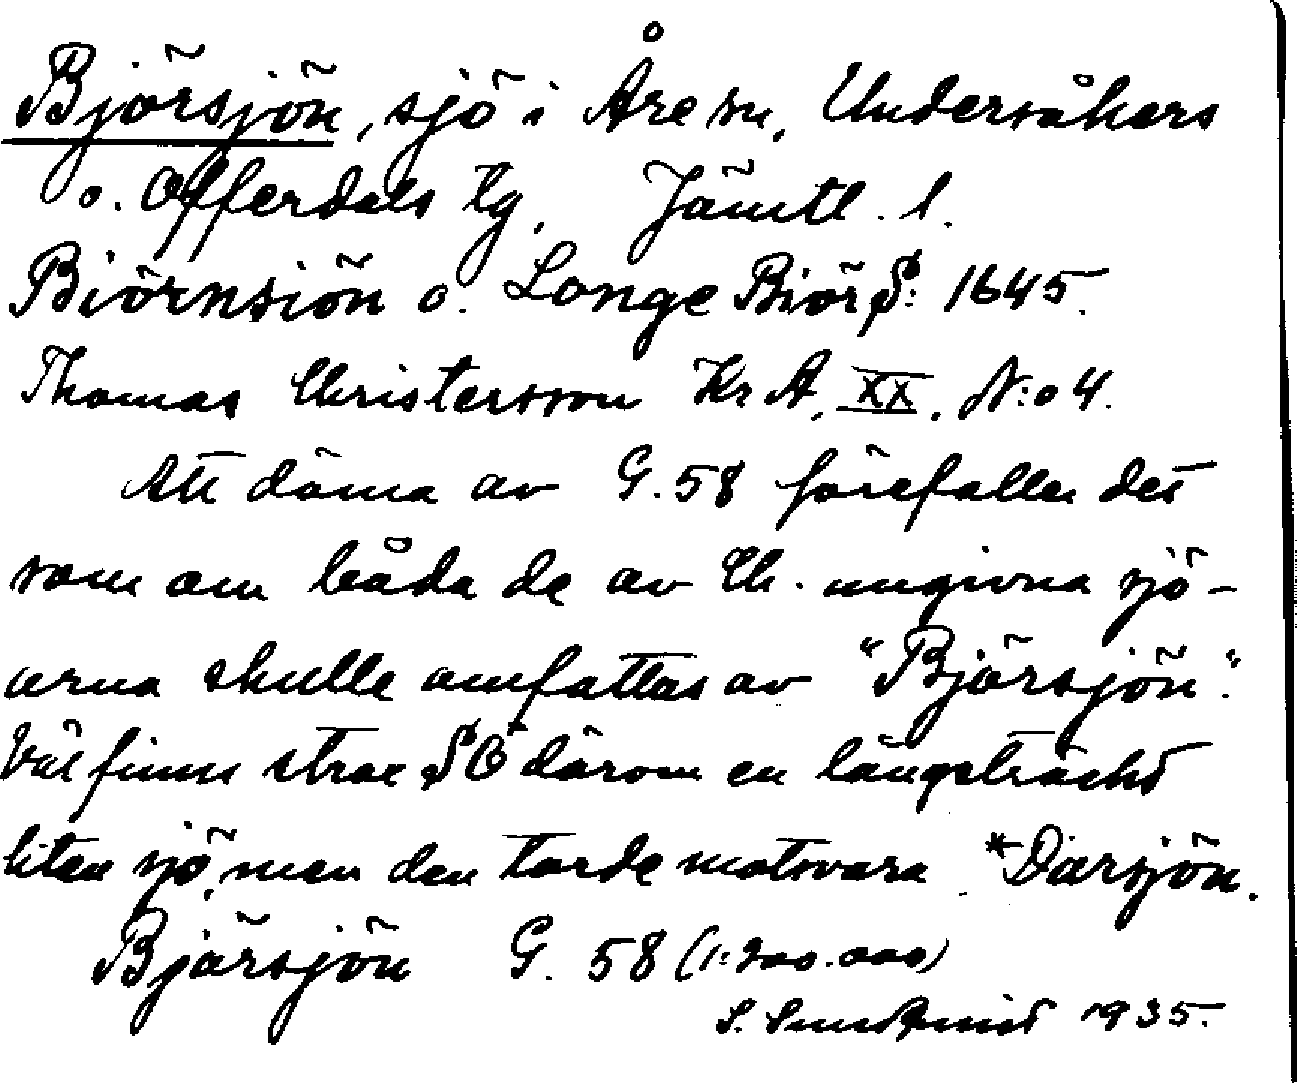 Björsjön, sjö i Åre sn, Undersåkers
o. Offerdals tg, Jämtl. l.
Biörnsiön o. Longe Biör S: 1645.
Thomas Christersson Kr A, XX, N:o 4.
Att döma av G. 58 förefaller det
som om båda de av Ch. angivna sjö-
arna skulle omfattas av "Björsjön".
Väl finns strax SO därom en långsträckt
liten sjö, men den torde motsvara *Diersjön.
Björsjön G. 58 (1:200.000)
S. Sundqvist 1935.